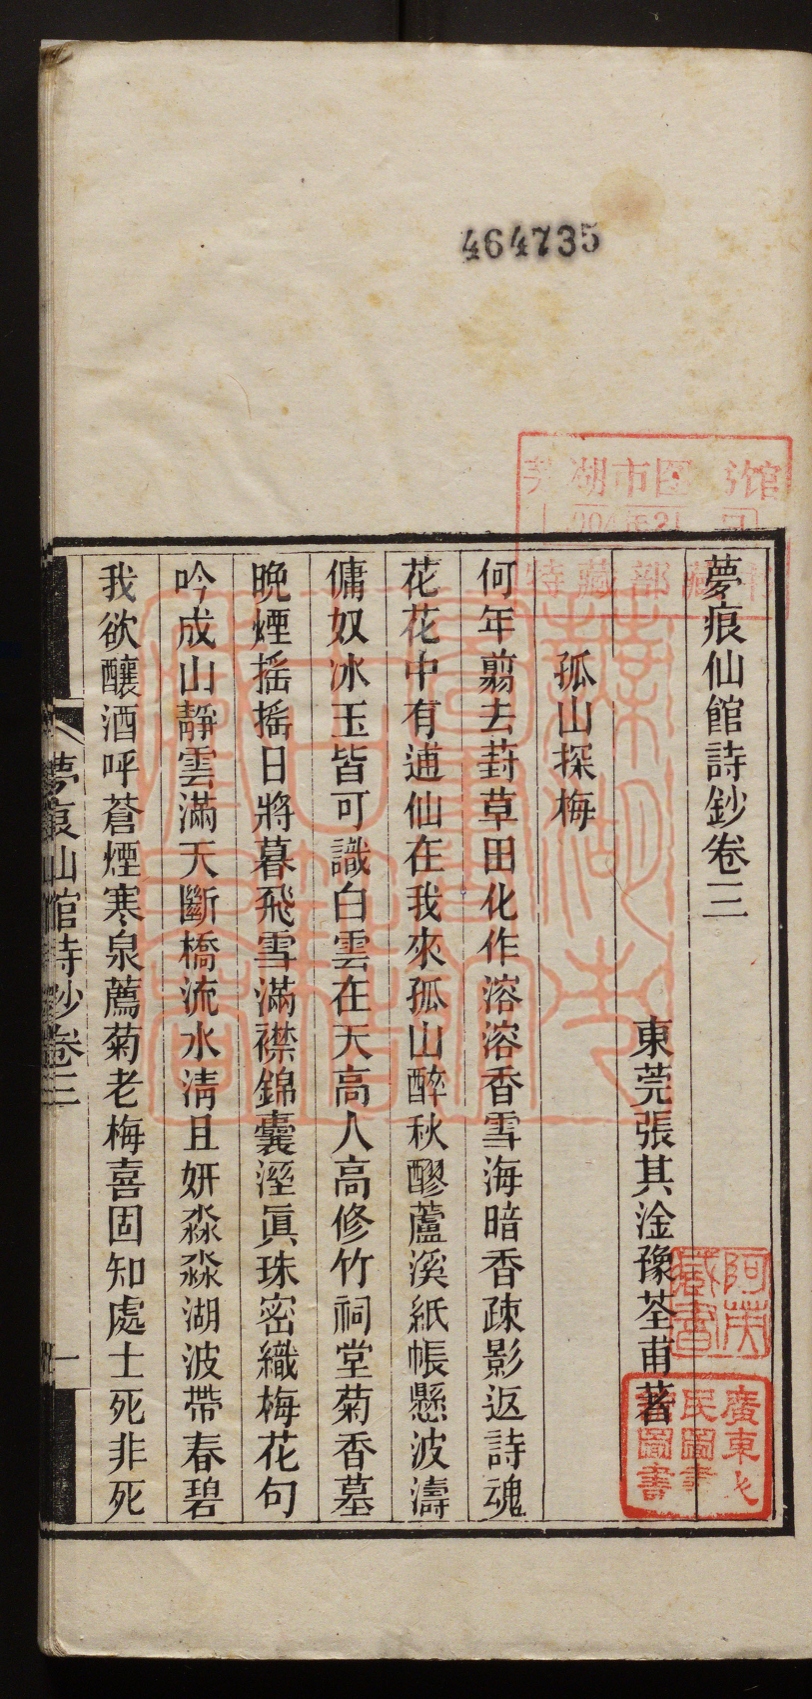 464735
湖市图 馆
特藏部藏
夢痕仙館詩鈔卷三
東莞張其淦豫荃甫著
孤山探梅
何年剪去葑草田化作溶溶香雪海暗香疎影返詩魂
花花中有逋仙在我來孤山醉秋醪蘆溪紙帳懸波濤
傭奴冰玉皆可識白雲在天高人高修竹祠堂菊香墓
晚煙搖搖日將暮飛雪滿襟錦囊溼眞珠密織梅花句
吟成山靜雲滿天斷橋流水清且妍淼淼湖波帶春碧
我欲釀酒呼蒼煙寒泉薦菊老梅喜固知處士死非死
夢痕仙館詩鈔卷三
一
阿英
藏書
廣東
民圖
圖書